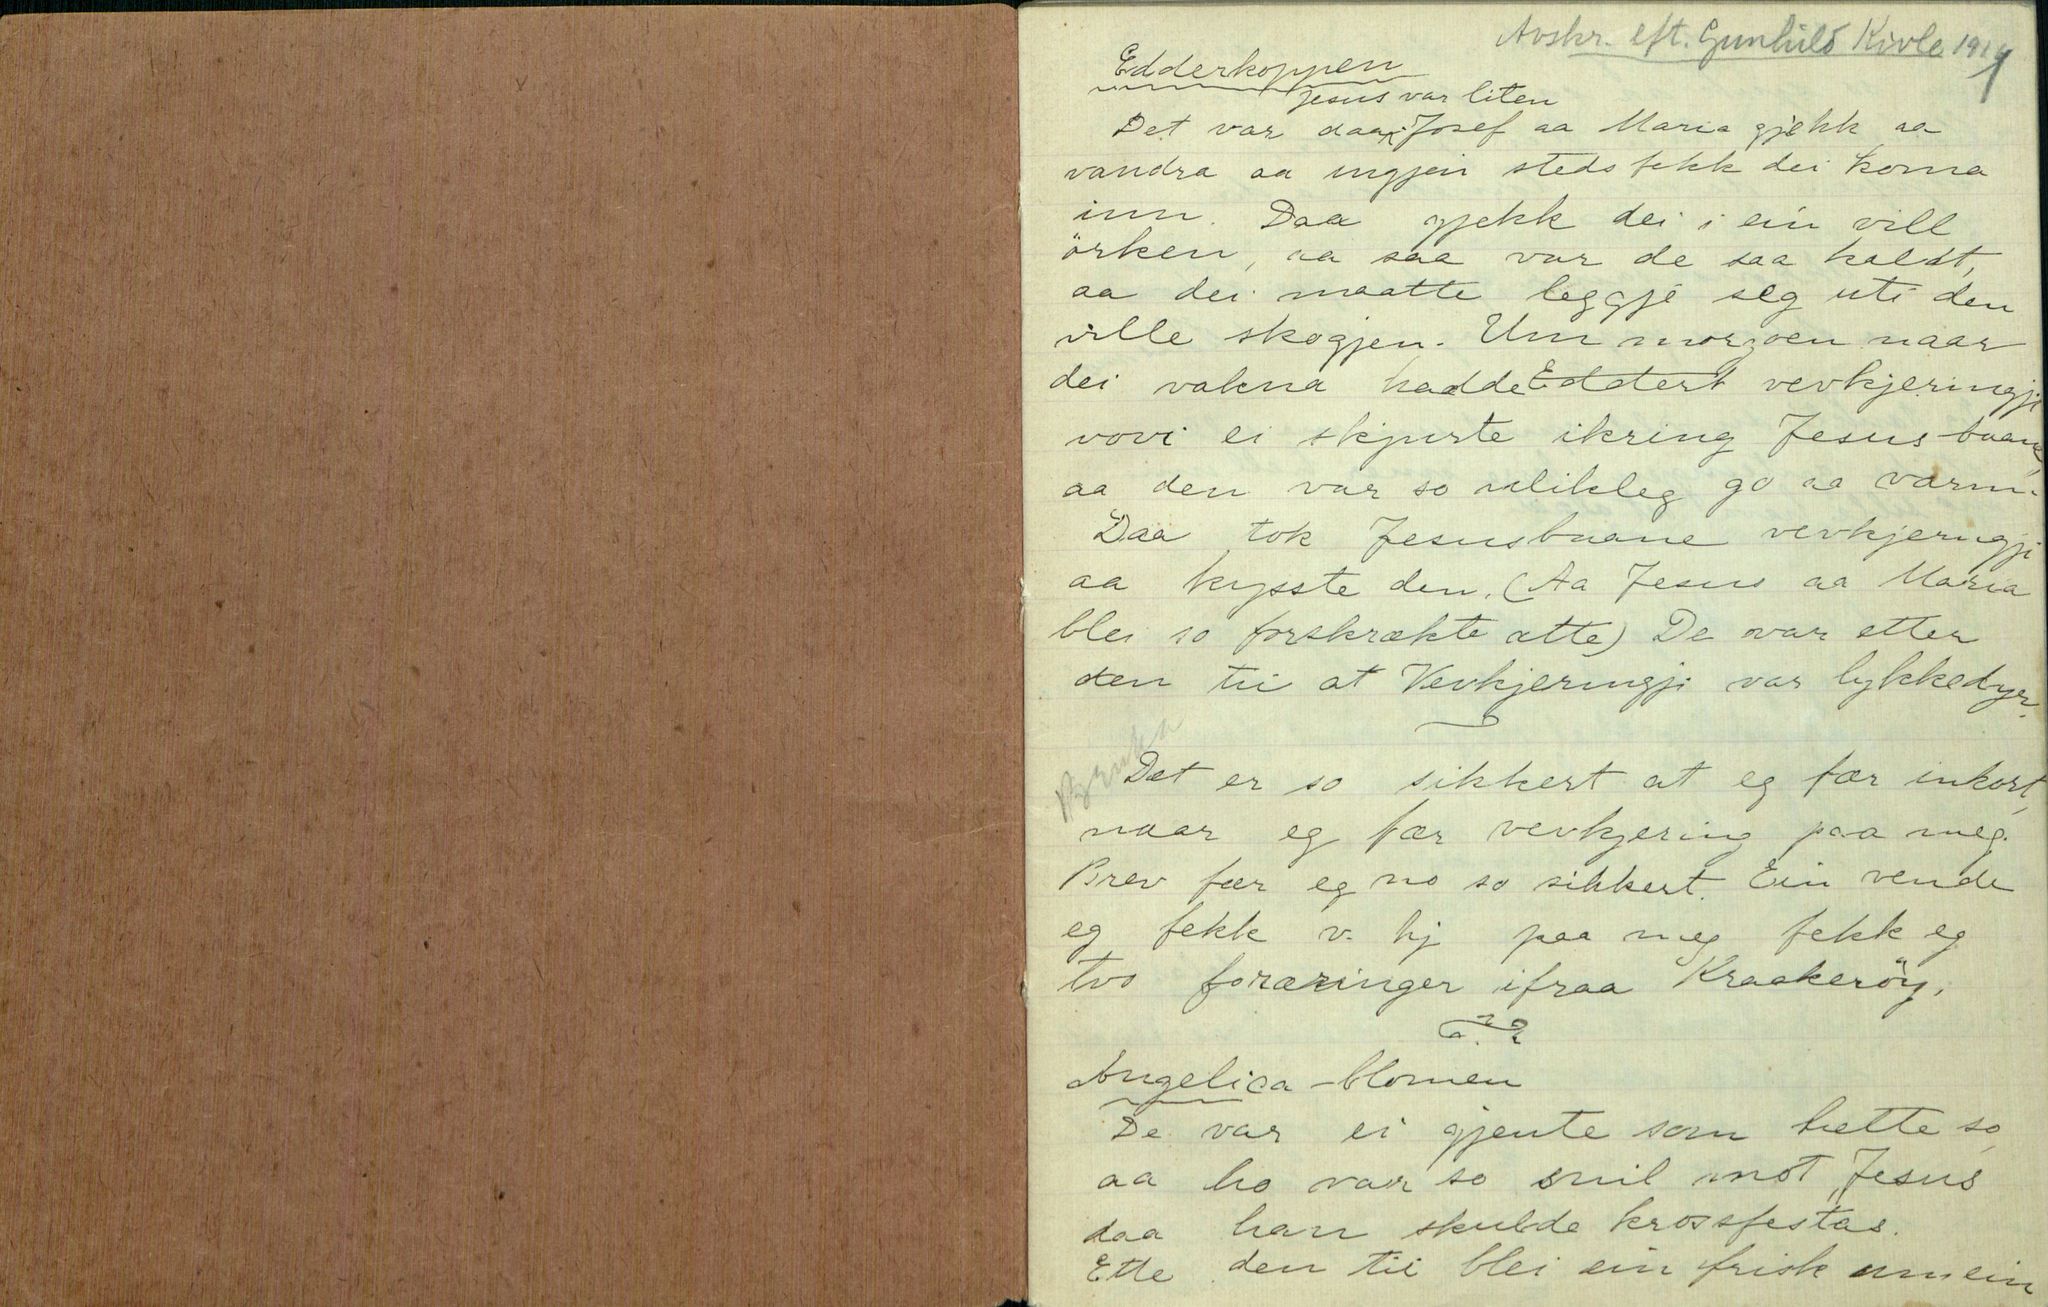 Avskr. eft. Gunhild Kivle 1914
1
Edderkoppen
Jesus var liten
Det var daa Josef aa Maria gjekk aa
vandra aa ingjen steds fekk dei koma
inn. Daa gjekk dei i ein vill
örken, aa saa var de saa kaldt,
aa dei maatte leggje seg uti den
ville skogjen. Um morgoen naar
dei vakna hadde Eddert vevkjeringji
vovi ei skjurte ikring Jesus-baane,
aa den var so ulikleg go aa varm.
Daa tok Jesusbaane vevkjerngji
aa kysste den. (Aa Jesus aa Maria
blei so forskrækte atte) De var etter
den tii at Vevkjeringji var lykkedyr.
Det er so sikkert at eg fær inkort,
naar eg fær vevkjering paa meg.
Brev fær eg no so sikkert. Ein vende
eg fekk v. kj paa meg fekk eg
tvo foræringer ifraa Kraakeröy.
Angelica-blomen
De var ei gjente som hette so,
aa ho var so snil mot Jesus
daa han skulde krossfestas.
Ette den tii blei ein frisk um ein